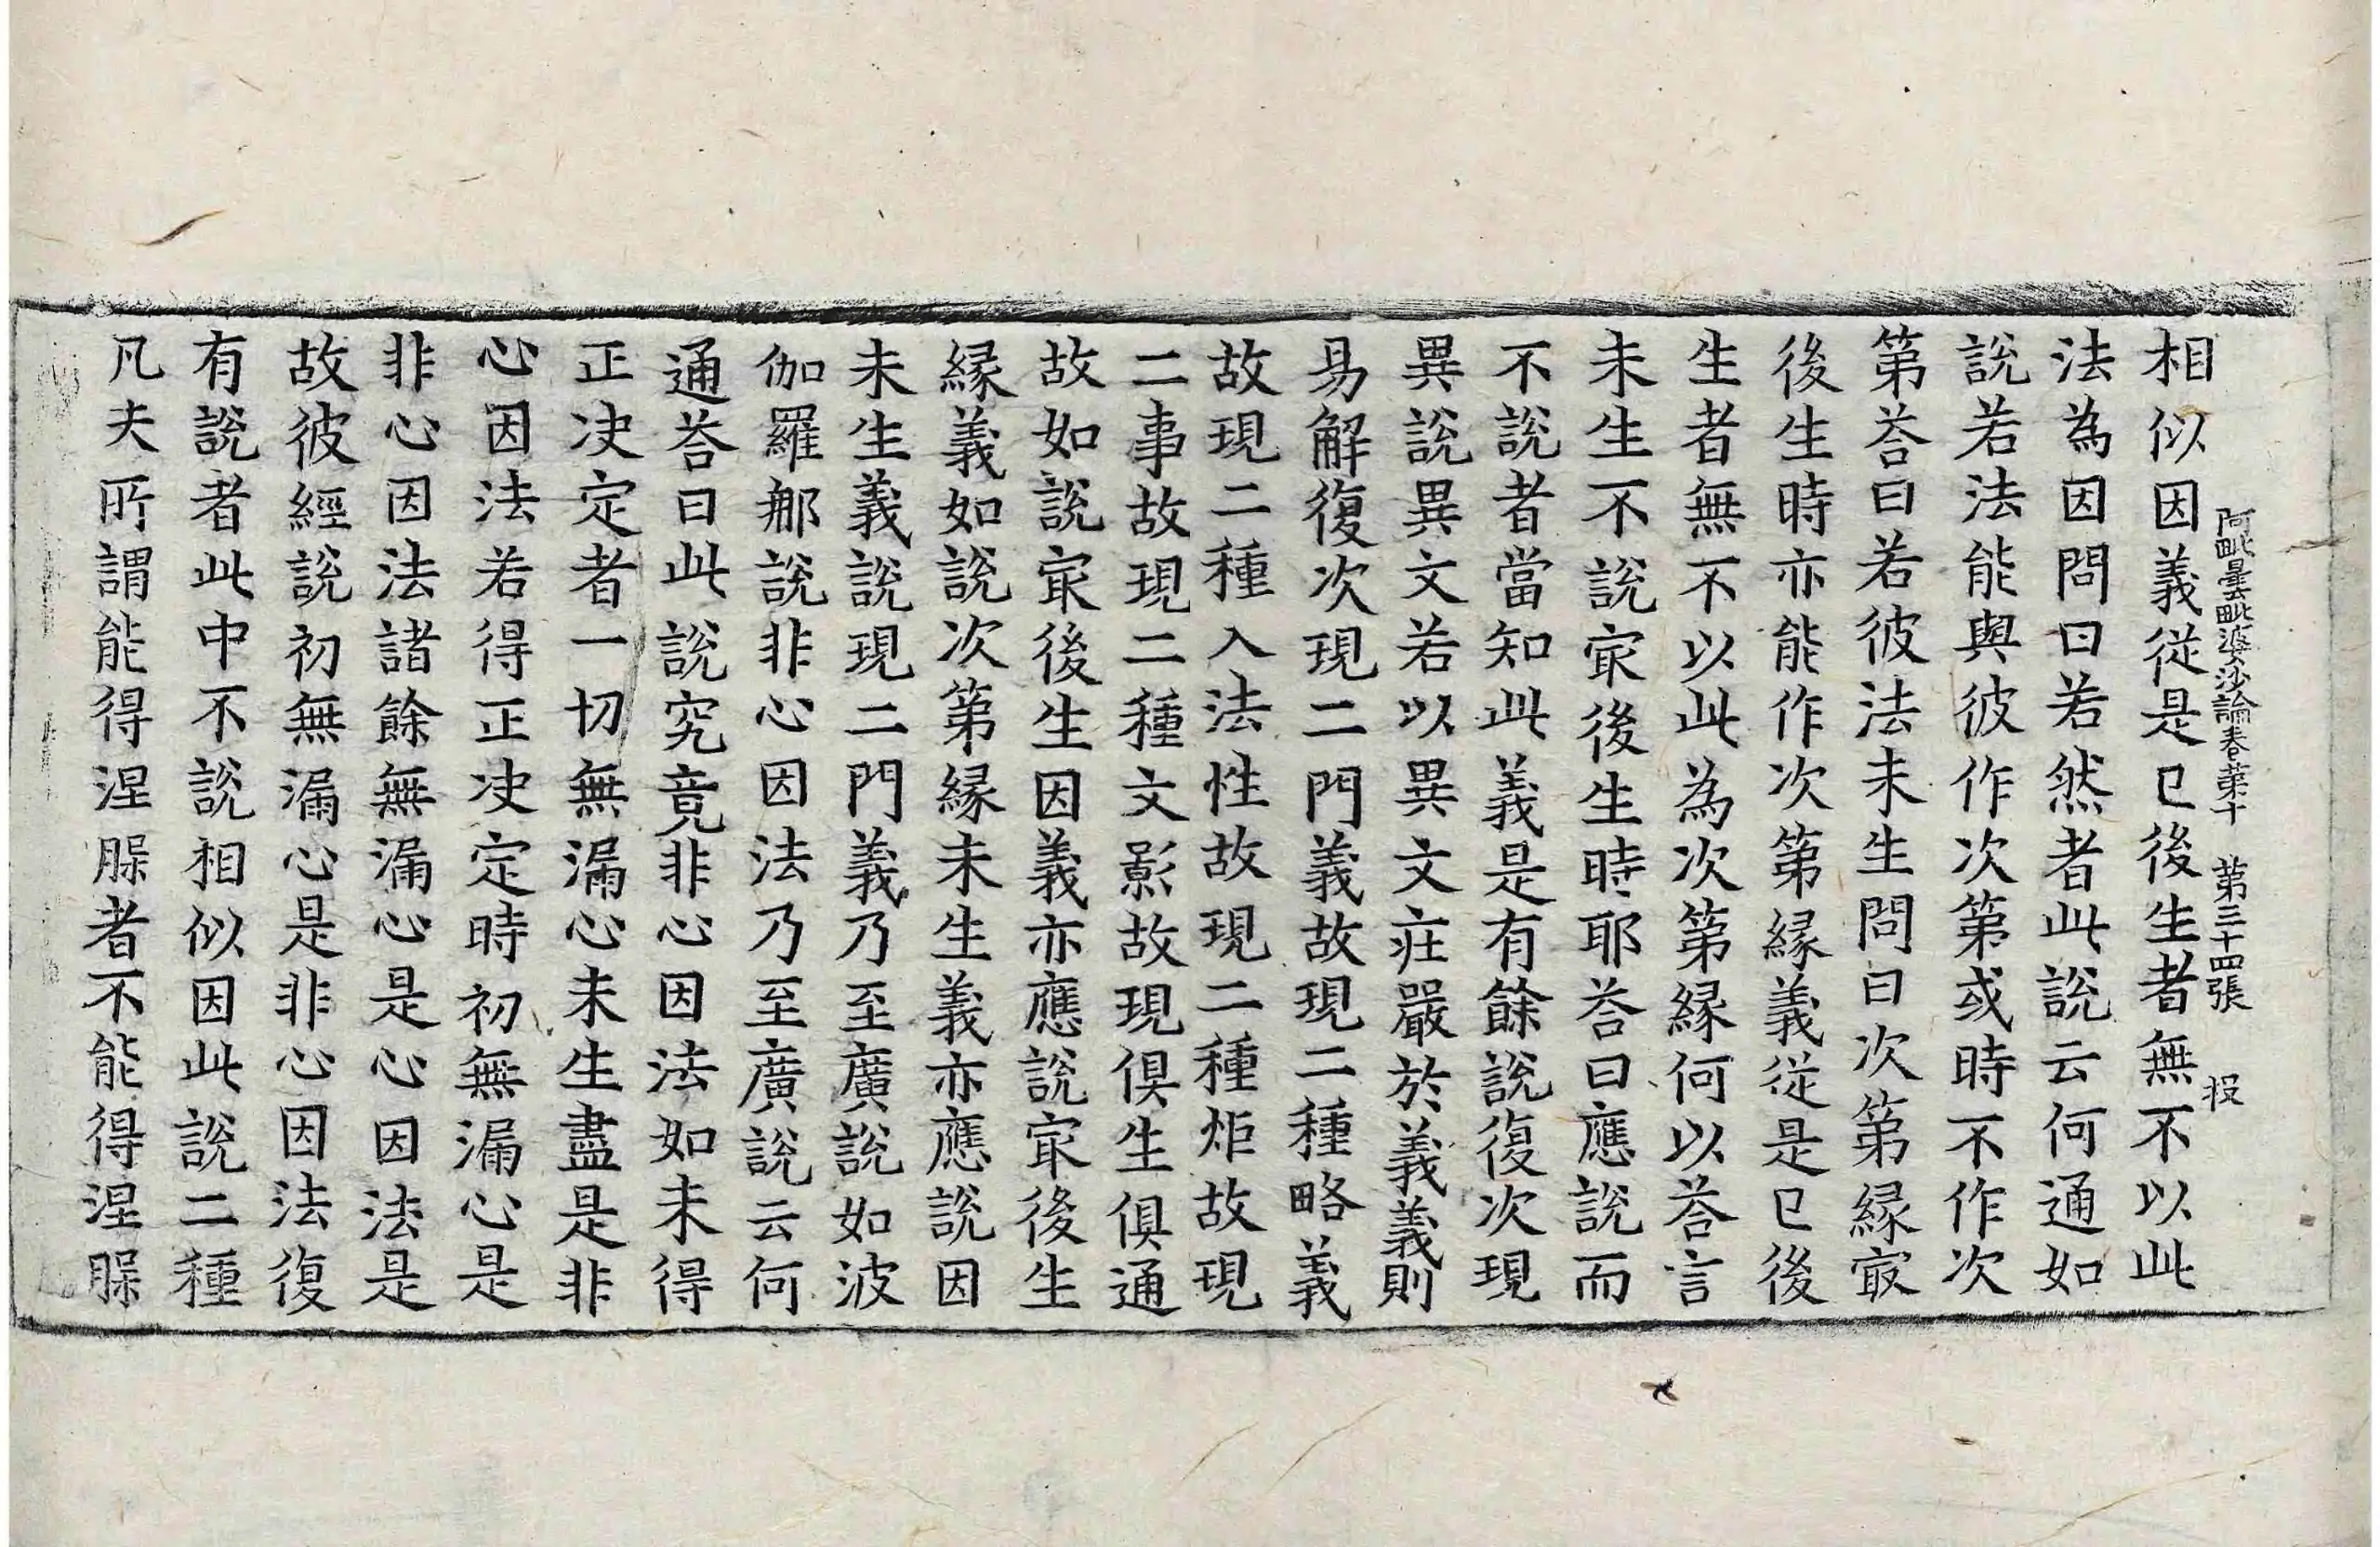 相似因義從是已後生者無不以此
阿毗曇毗婆沙論卷第十 第三十四張
法為因問曰若然者此說云何通如
說若法能與彼作次第或時不作次
第荅曰若彼法未生問曰次第縁㝡
後生時亦能作次第縁義從是已後
生者無不以此為次第縁何以荅言
未生不說㝡後生時耶荅曰應說而
不說者當知此義是有餘說復次現
異說異文若以異文文莊嚴於義義則
易解復次現二門義故現二種略義
故現二種入法性故現二種炬故現
二事故現二種文影故現俱生俱通
故如說㝡後生因義亦應說㝡後生
縁義如說次第縁未生義亦應說因
未生義說現二門義乃至廣說如波
伽羅那說非心因法乃至廣說云何
通荅曰此說究竟非心因法如未得
正決定者一切無漏心未生盡是非
心因法若得正決定時初無漏心是
非心因法諸餘無漏心是心因法是
故彼經說初無漏心是非心因法復
有說者此中不說相似因此說二種
凡夫所謂能得涅槃者不能得涅槃